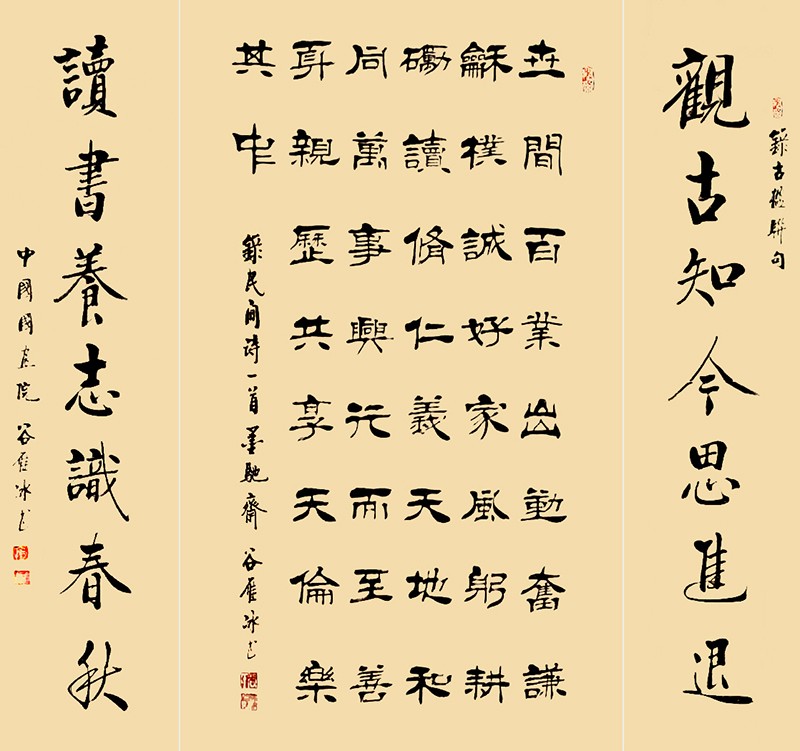 錄古楹聯句
觀古知今思進退
世間百業出勤奮謙
龢樸誠好家風躬耕
礪讀脩仁義天地和
同萬事興行而至善
身親歷共享天倫樂
其中
錄民间诗一首 墨馳齋 谷雁冰书
讀書養志識春秋
中國國画院 谷雁冰书